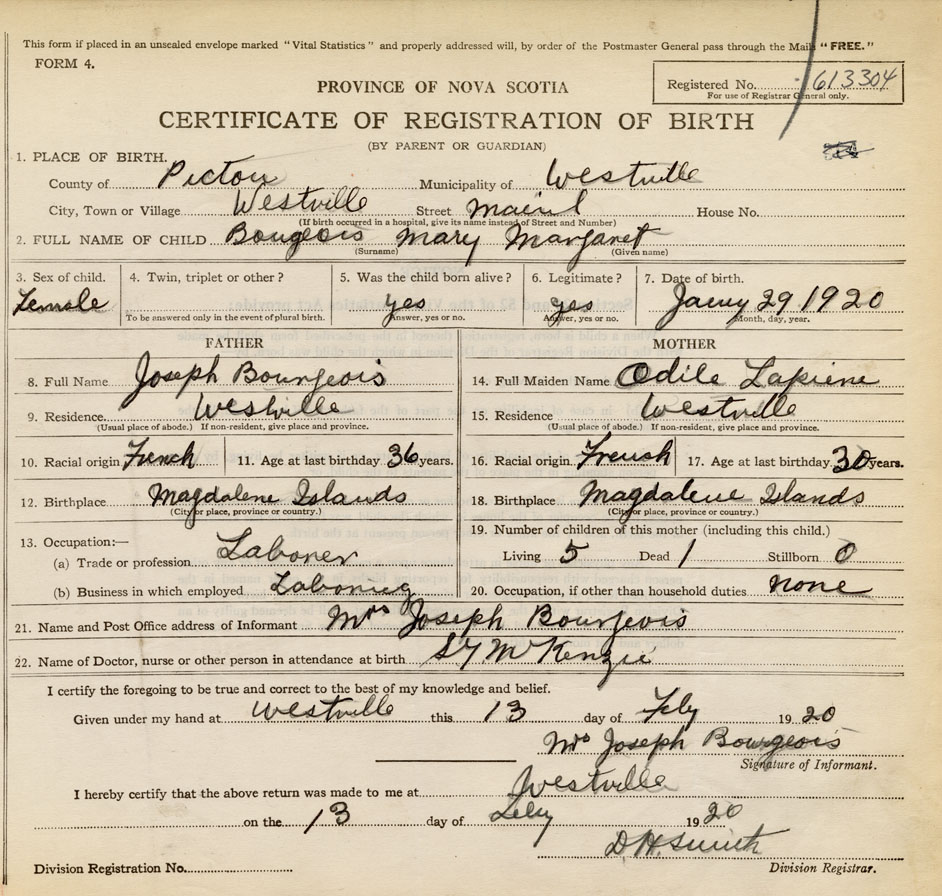 This form if placed in an unsealed envelope marked "Vital Statistics" and properly addressed will, by order of the Postmaster General pass through the Mails "FREE."
FORM 4.
PROVINCE OF NOVA SCOTIA
Registered No. 613304
For use of Registrar General only.
CERTIFICATE OF REGISTRATION OF BIRTH
(BY PARENT OR GUARDIAN)
1. PLACE OF BIRTH.
County of Pictou Municipality of Westville
City, Town or Village Westville Street House No.
(If birth occurred in a hospital, give its name instead of Street and Number)
2. FULL NAME OF CHILD Bougeois Mary Margaret
(Surname) (Given name)
3. Sex of child. 4. Twin, triplet or other? 5. Was the child born alive? 6. Legitimate? 7. Date of birth.
Female yes yes Jany 29 1920
To be answered only in the event of plural birth. Answer, yes or no. Answer, yes or no. Month, day, year.
FATHER MOTHER
8. Full Name Joseph Bourgeois 14. Full Maiden Name Odile Lapierre
9. Residence Westville 15. Residence Westville
(Usual place of abode.) If non-resident, give place and province. (Usual place of abode.) If non-resident, give place and province.
10. Racial origin French 11. Age at last birthday 36 years. 16. Racial origin French 17. Age at last birthday 30 years.
12. Birthplace Magdalene Islands 18. Birthplace Magdalene Islands
(City or place, province or country.) (City or place, province or country.)
13. Occupation:— 19. Number of children of this mother (including this child.)
(a) Trade or profession Laborer Living 5 Dead 1 Stillborn 0
(b) Business in which employed Laboring 20. Occupation, if other than household duties none
21. Name and Post Office address of Informant Mrs Joseph Bourgeois
22. Name of Doctor, nurse or other person in attendance at birth McKenzie
I certify the foregoing to be true and correct to the best of my knowledge and belief.
Given under my hand at Westville this 13 day of Feby 1920
Mrs Joseph Bourgeois
Signature of Informant.
I hereby certify that the above return was made to me at Westville
on the 13 day of Feby 1920
D H. Smith
Division Registration No. Division Registrar.